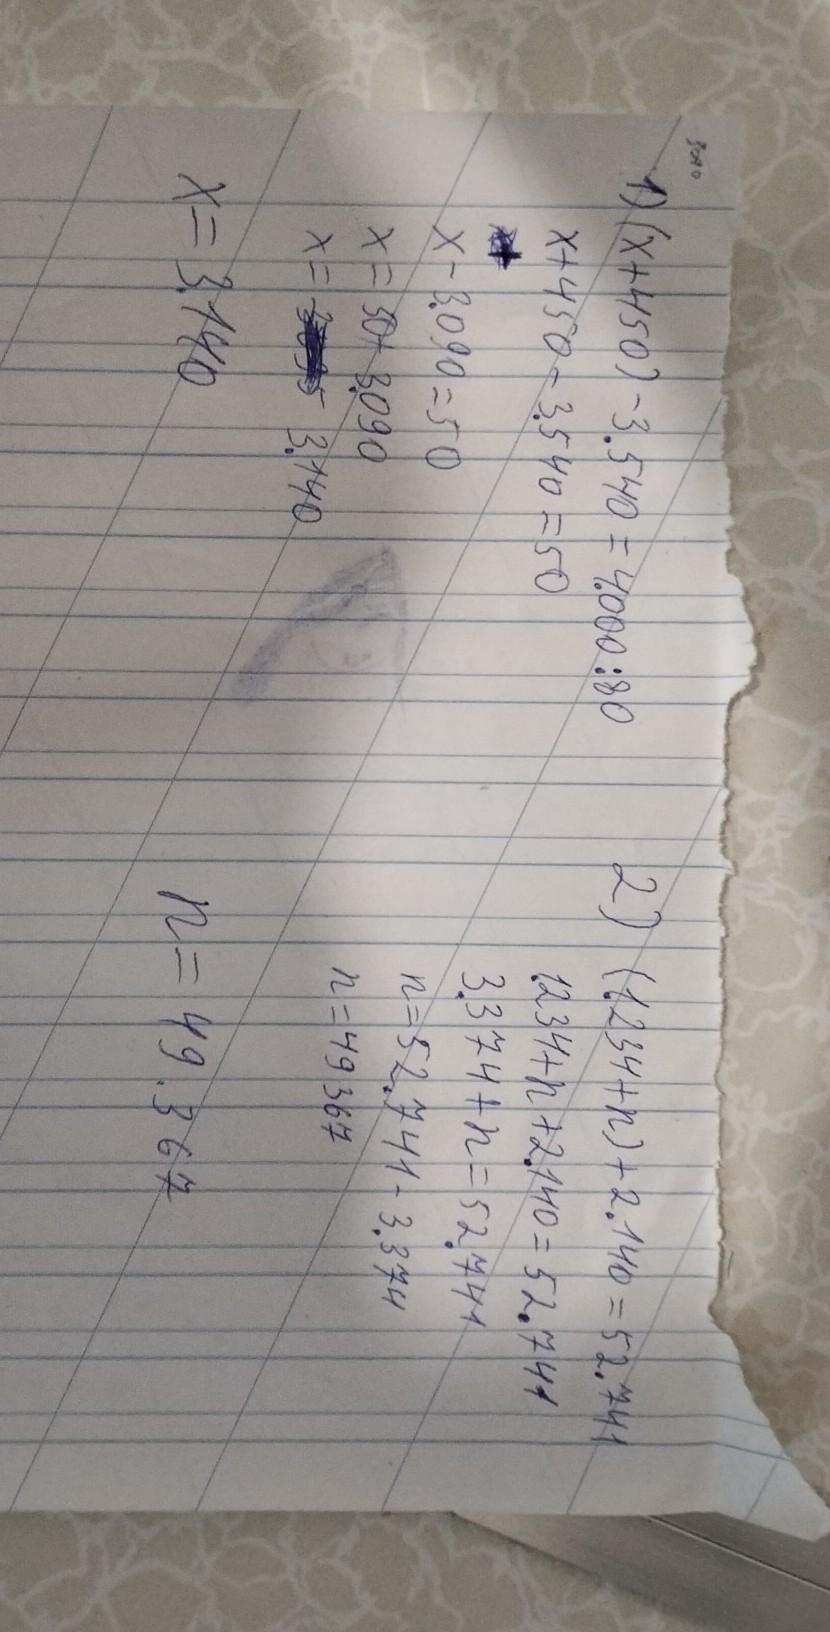 1) (x+450)-3.540=4.000:80
x+450-3.540=50
x-3.090=50
x=50+3.090
x= 3.140
x=3.140
2) (1.234+n)+2.140=52.741
1.234+n+2.140=52.741
3.374+n=52.741
n=52.741-3.374
n=49367
n=49.367